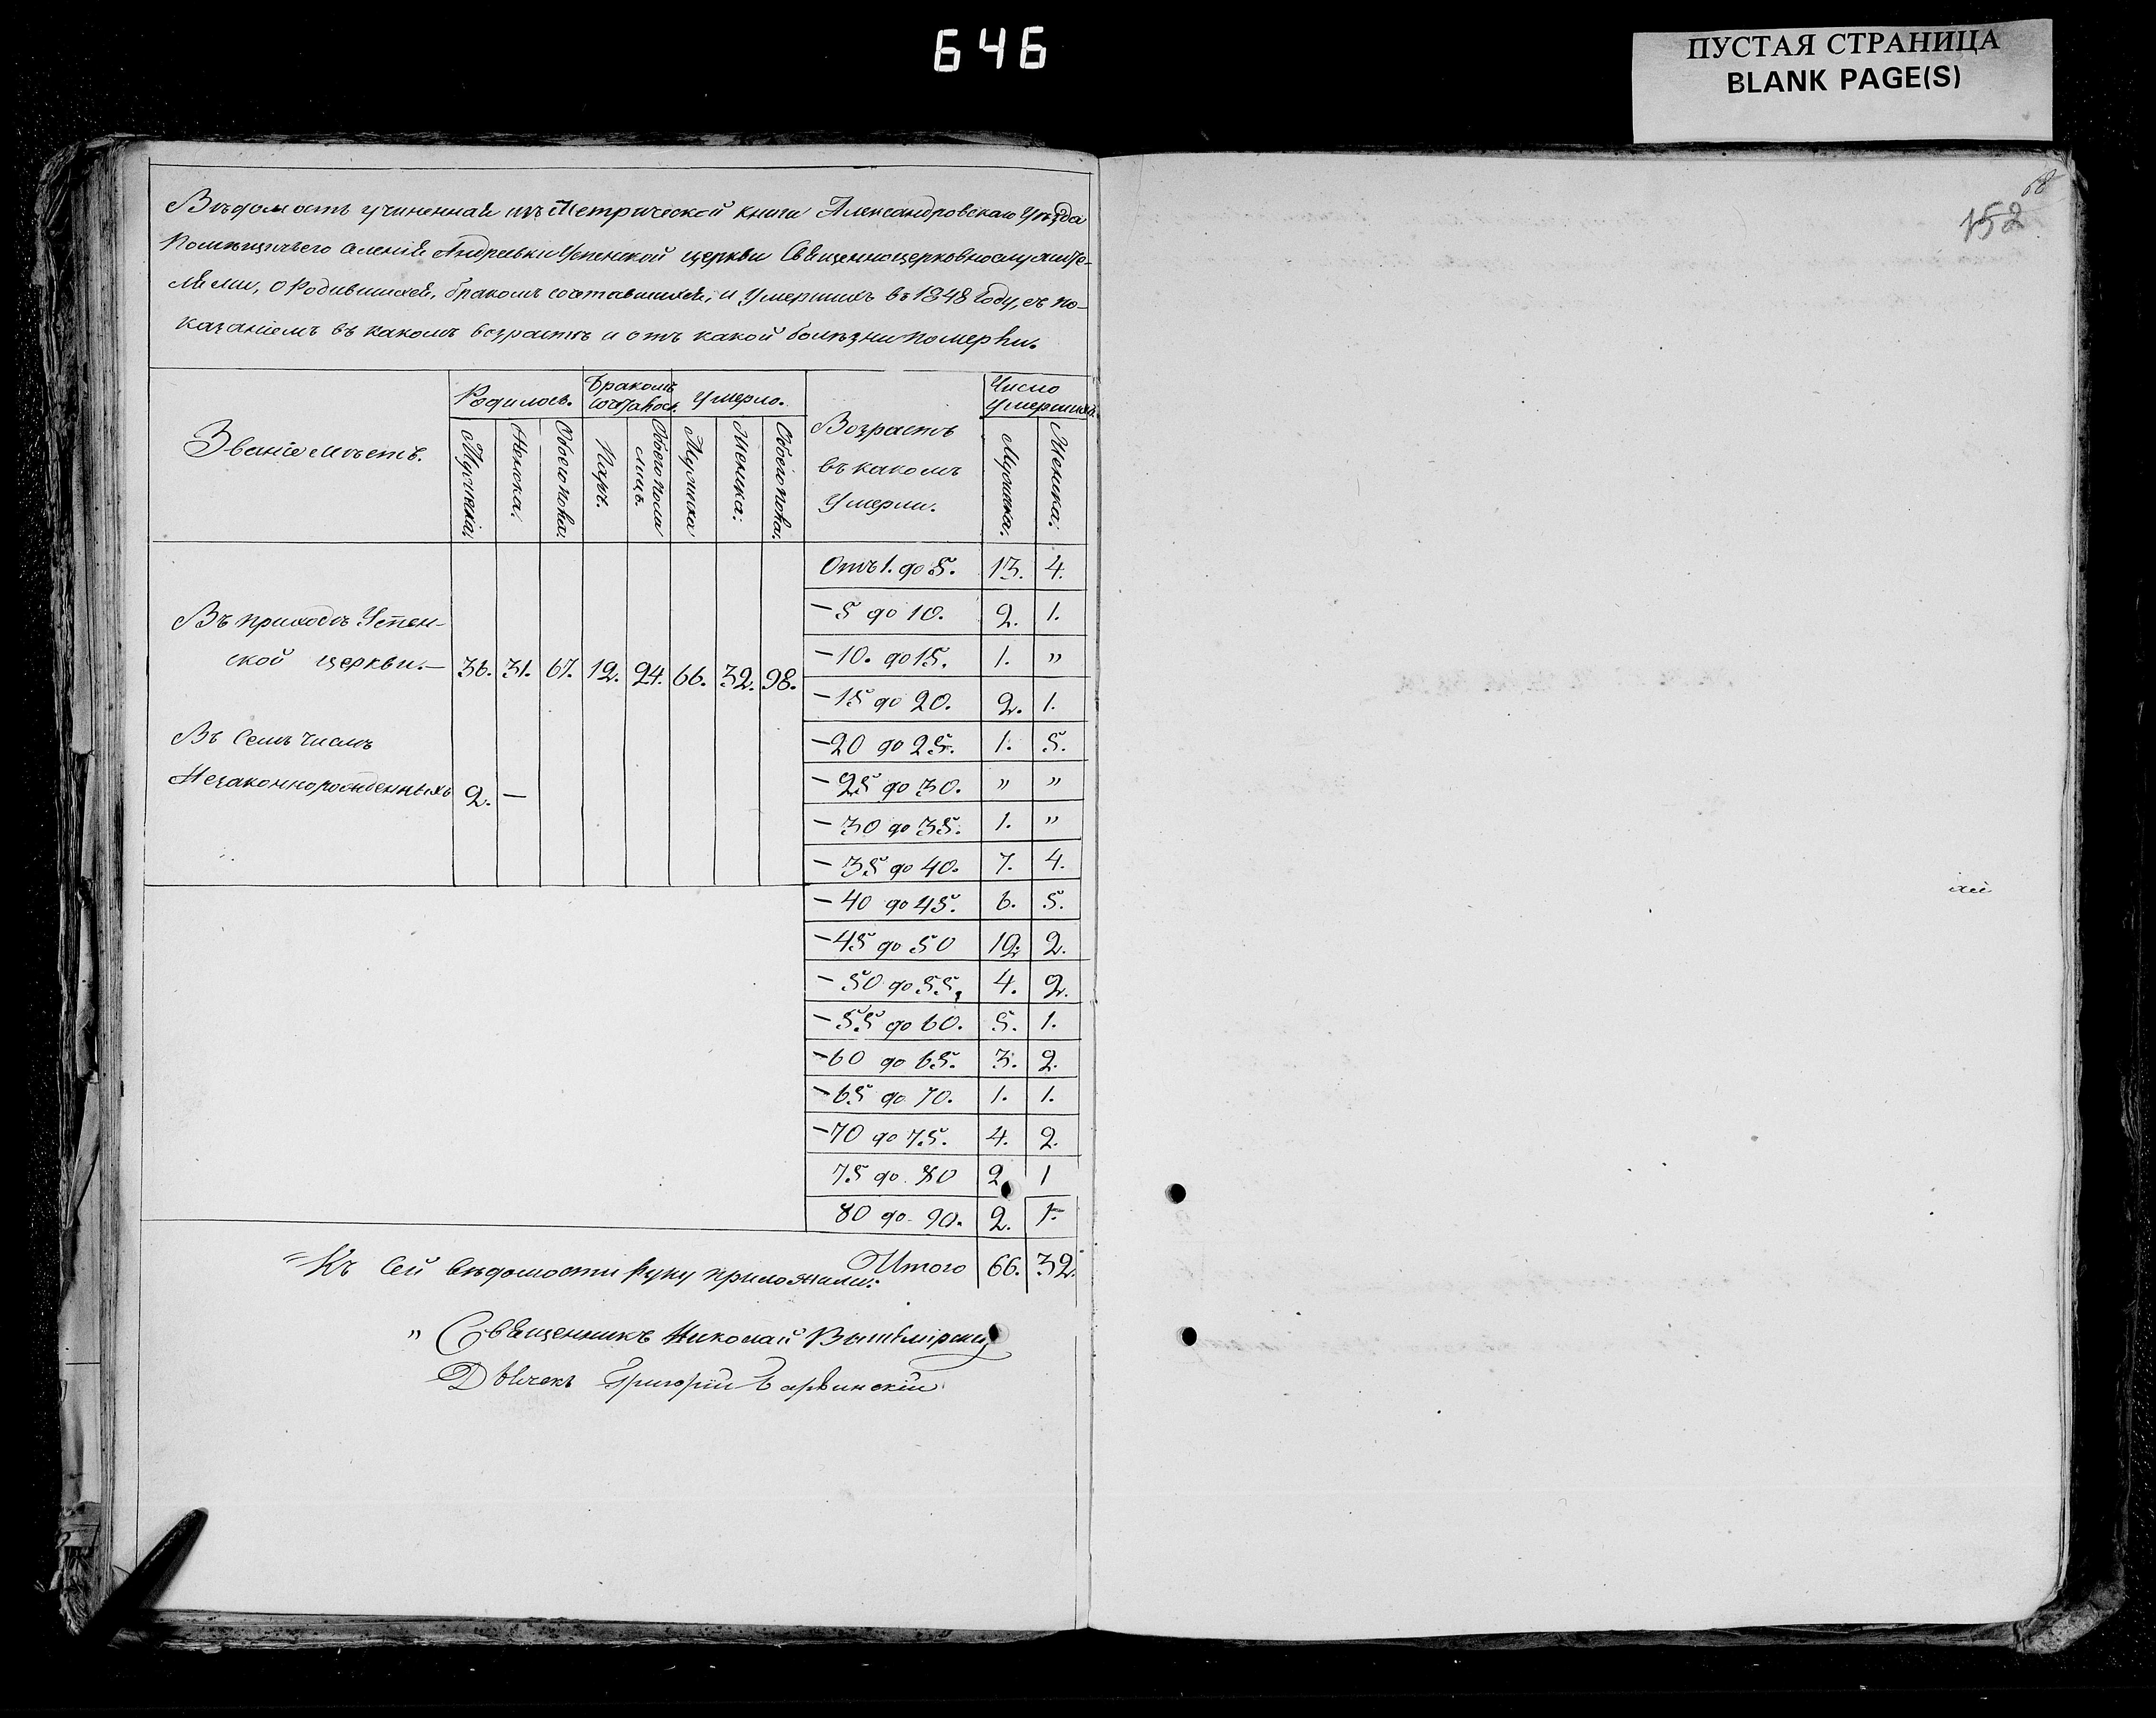 646
ПУСТАЯ СТРАНИЦА
BLANK PAGE(S)
68
152
Вѣдомость учиненная изъ Метрической книги Александровскаго Уѣзда
Помѣщичьего селенія Андреевки Успенской церкви Священноцерковнослужите-
лями, о Родившихся, бракомъ сочетавшихся, и Умершихъ въ 1848 Году, съ по-
казаніемъ въ какомъ возрастѣ и отъ какой болѣзни померли.
Званіе мѣстъ. Родилось. Бракомъ сочеталось. Умерло. Возрастъ въ какомъ Умерли. Число Умершихъ.
Мужеска: Женска: Обоего пола: Паръ. Обоего пола лицъ. Мужеска Женска: Обоего пола: Мужеска: Женска:
Отъ 1. до 5. 13. 4.
— 5 до 10. 2. 1.
— 10. до 15. 1. "
— 15 до 20. 2. 1.
— 20 до 25. 1. 5.
— 25 до 30. " "
— 30 до 35. 1. "
— 35 до 40. 7. 4.
— 40 до 45. 6. 5.
— 45 до 50 12. 2.
— 50 до 55, 4. 2.
— 55 до 60. 5. 1.
— 60 до 65. 3. 2.
— 65 до 70. 1. 1.
— 70 до 75. 4. 2.
75 до 80 2. 1
80 до 90. 2. 1.
Итого 66. 32.
Въ приходѣ Успен-
ской церкви.— 36. 31. 67. 12. 24. 66. 32. 98.
Въ семъ числѣ
Незаконнорожденныхъ 2. —
Къ сей вѣдомости руку приложили:
" Священникъ Николай
Дьячекъ Григорій Барвинскій